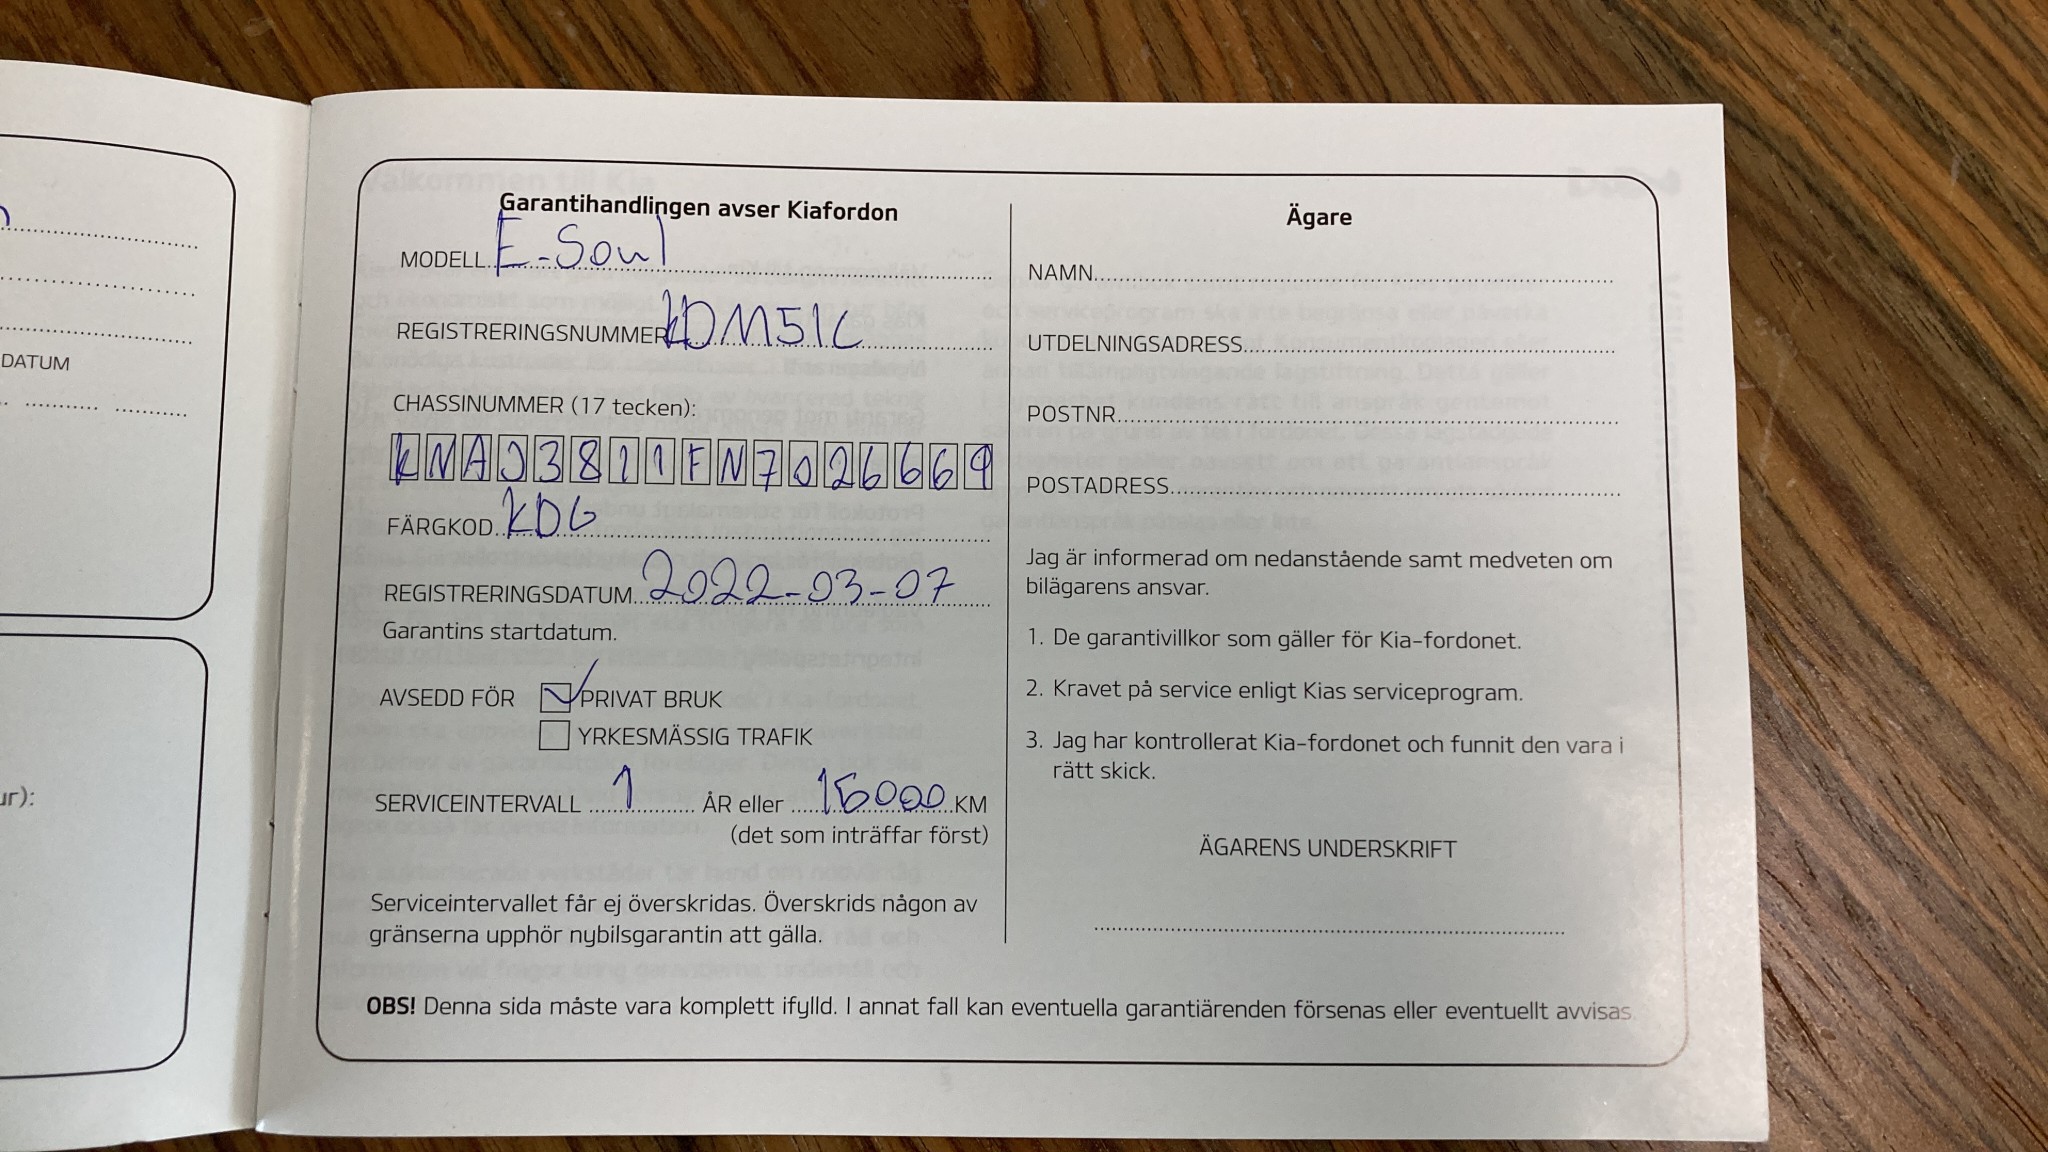 DATUM
ur):
Garantihandlingen avser Kiafordon
MODELL E-Soul
REGISTRERINGSNUMMER KDM51C
CHASSINUMMER (17 tecken):
KNAJ3811FN7026669
FÄRGKOD KDG
REGISTRERINGSDATUM 2022-03-07
Garantins startdatum.
AVSEDD FÖR PRIVAT BRUK
YRKESMÄSSIG TRAFIK
SERVICEINTERVALL 1 ÅR eller 15000 KM
(det som inträffar först)
Serviceintervallet får ej överskridas. Överskrids någon av
gränserna upphör nybilsgarantin att gälla.
Ägare
NAMN
UTDELNINGSADRESS
POSTNR
POSTADRESS
Jag är informerad om nedanstående samt medveten om
bilägarens ansvar.
1. De garantivillkor som gäller för Kia-fordonet.
2. Kravet på service enligt Kias serviceprogram.
3. Jag har kontrollerat Kia-fordonet och funnit den vara i
rätt skick.
ÄGARENS UNDERSKRIFT
OBS! Denna sida måste vara komplett ifylld. I annat fall kan eventuella garantiärenden försenas eller eventuellt avvisas.